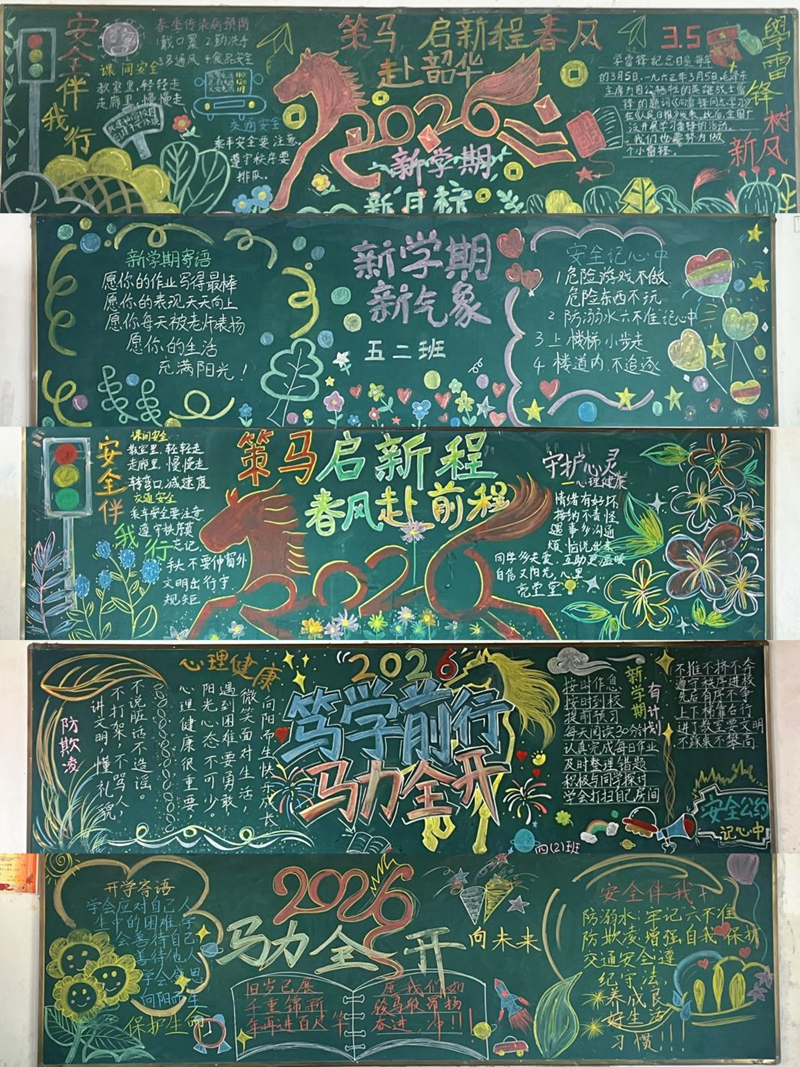 安全伴我行
春季传染病预防
1戴口罩 2勤洗手
3多通风 4食品安全
课间安全
教室里,轻轻走
走廊里,慢慢走
交通安全
乘车安全要注意,
遵守秩序要
排队。
策马启新程春风
赴韶华
2026
新学期
新目标
3.5
学雷锋纪念日是每年
的3月5日,一九六三年3月5日,毛泽东
学雷锋
树
新风
新学期寄语
愿你的作业写得最棒
愿你的表现天天向上
愿你每天被老师表扬
愿你的生活
充满阳光!
新学期
新气象
五二班
安全记心中
1危险游戏不做
危险东西不玩
2防溺水六不准记心中
3上楼梯小步走
4楼道内不追逐
安全伴
我行
课间安全
教室里,轻轻走
走廊里,慢慢走
转弯口,减速度
交通安全
乘车安全要注意
遵守秩序莫
忘记
不要伸窗外
文明出行守
规矩
策马启新程
春风赴前程
2026
守护心灵
—心理健康
情绪有好坏
接纳不责怪
遇事多沟通
烦恼说出来
同学多关爱,互助更温暖
自信又阳光,心里
亮堂堂
防欺凌
不说脏话不造谣。
不打架,不骂人,
讲文明,懂礼貌。
心理健康
向阳而生快乐成长
微笑面对生活,
遇到困难要勇敢
阳光心态不可少。
心理健康很重要
2026
笃学前行
马力全开
四(2)班
新学期
有计划
按时作息
按时到校
提前预习
每天阅读30分钟
认真完成每日作业
及时整理错题
积极与同学探讨
学会打扫自己房间
不推不挤不
安全公约
记心中
开学寄语
学会应对自己人
生中的困难,学
会善待自己
向阳而生
保护生命
2026
马力全开
向未来
旧岁已展
千重锦,新
年再进百尺竿
愿我们如
骏马般昂扬
奋进,冲!!!
安全伴我行
防溺水:牢记六不准
防欺凌:增强自我保护
交通安全:遵
纪守法,
养成良
好生活
习惯!!!